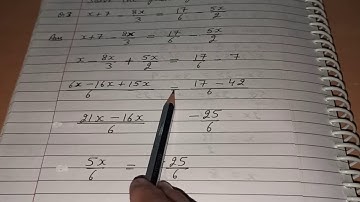 Q.3 x+7 - 8x/3 = 17/6 - 5x/2
Ans x+7 - 8x/3 = 17/6 - 5x/2
x - 8x/3 + 5x/2 = 17/6 - 7
6x-16x+15x/6 = 17-42/6
21x-16x/6 -25/6
5x/6 = -25/6